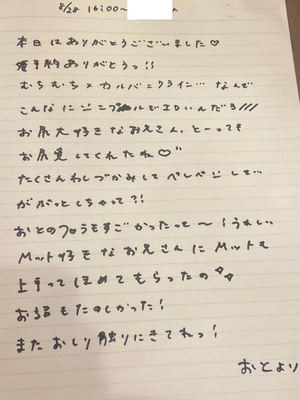 8/28 16:00〜
本日はありがとうございました♡
ありがとうっ!!
むちむち×カルバンクライン…なんで
こんなにシンプルでエロいんだろ///
お尻大好きなお兄さん、とーっても
お尻愛してくれたね♡"
たくさんわしづかみしてペしぺしして…
がぶっとしちゃって?!
おとのフロうもすごかったって〜!うれしい
Mット好きなお兄さんにMットも
上手ってほめてもらったの
お話もたのしかった!
またおしり触りにきてねっ!
おとより